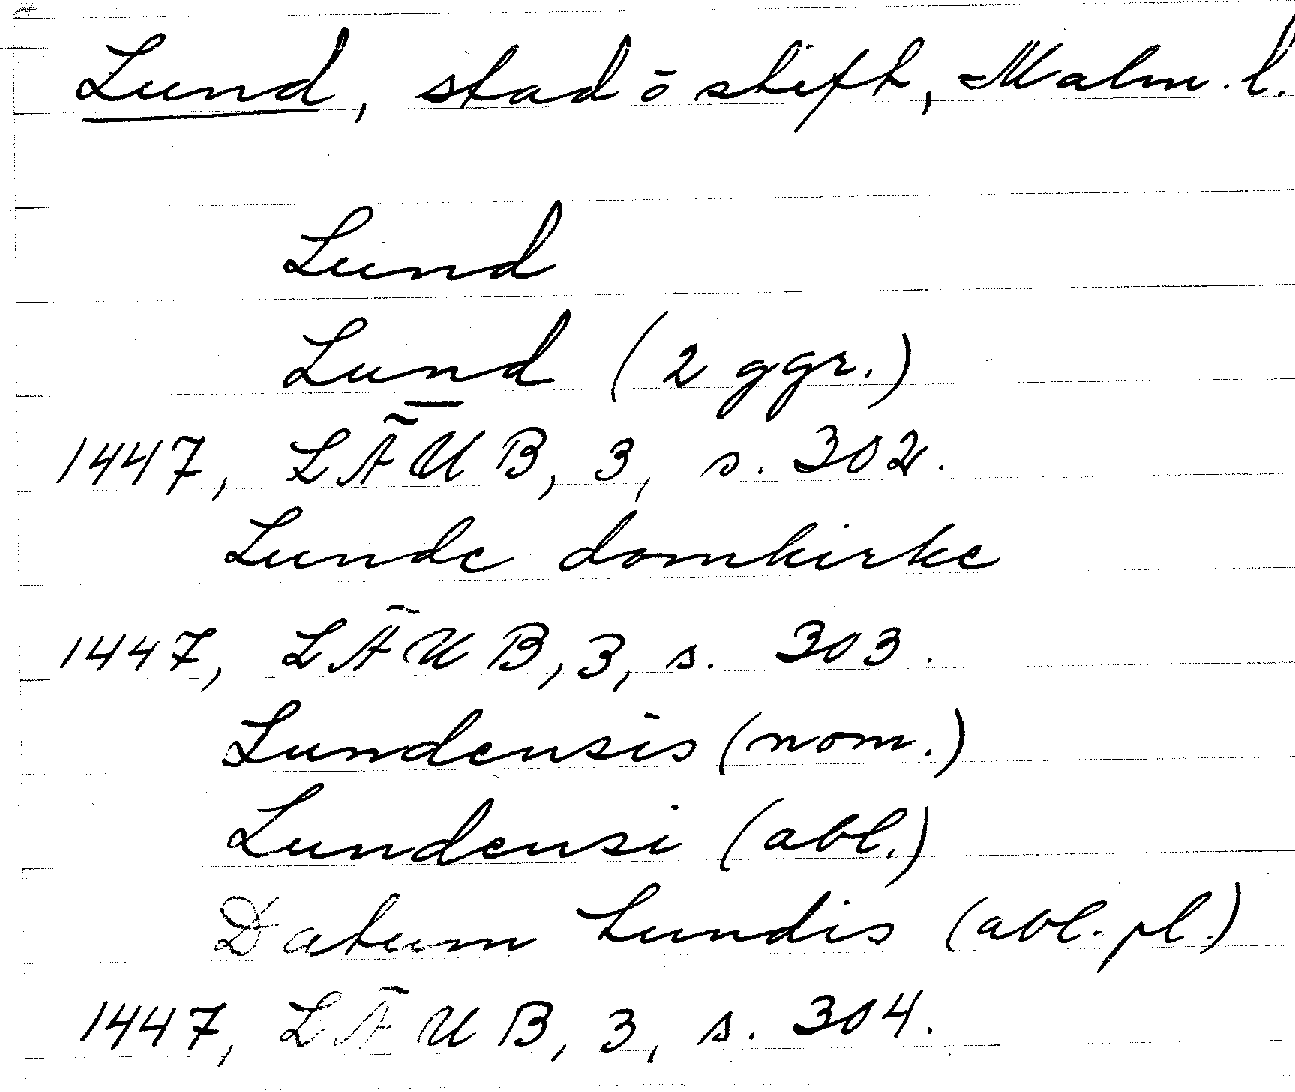 Lund, stad o stift, Malm. l.
Lund
Lund (2 ggr.)
1447, LÄUB, 3, s. 302.
Lunde domkirke
1447, LÄUB, 3, s. 303.
Lundensis (nom.)
Lundensi (abl.)
Datum Lundis (abl. pl.)
1447, LÄUB, 3, s. 304.